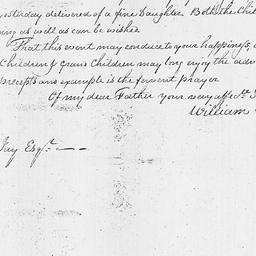 yesterday delivered of a fine Daughter. Both the Chil
as well as can be wished
That this event may conduce to your happiness, a
Children & grand Children may long enjoy the adv
precepts and example is the fervent prayer
Of my dear Father your very affect.
William
Jay Esqr.